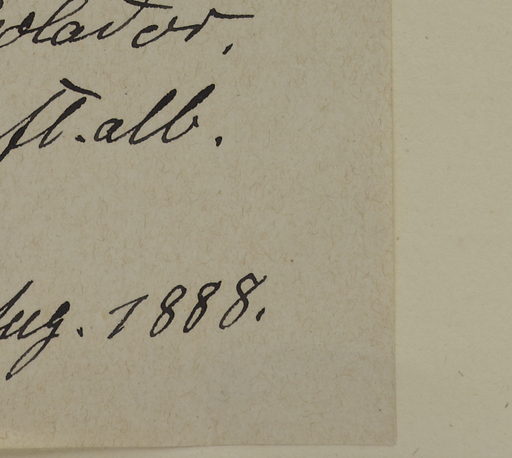 olador,
fl. alb.
Aug. 1888.